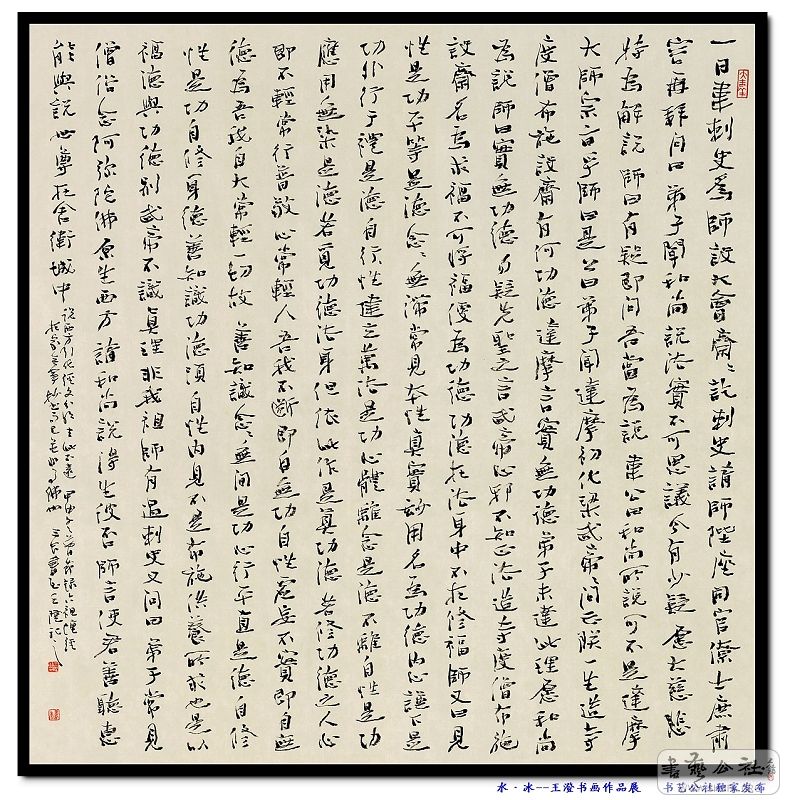 一日韋刺史為師設大會齋〻訖刺史請師陞座同官僚士庶肅
容再拜問曰弟子聞和尚說法實不可思議今有少疑願大慈悲
特為解說師曰有疑即問吾當為說韋公曰和尚所說可不是達摩
大師宗旨乎師曰是公曰弟子聞達摩初化梁武帝〻問云朕一生造寺
度僧布施設齋有何功德達摩言實無功德弟子未達此理願和尚
為說師曰實無功德勿疑先聖之言武帝心邪不知正法造寺度僧布施
設齋名為求福不可將福便為功德功德在法身中不在修福師又曰見
性是功平等是德念〻無滯常見本性真實妙用名為功德內心謙下是
功外行于禮是德自性建立萬法是功心體離念是德不離自性是功
應用無染是德若覓功德法身但依此作是真功德若修功德之人心
即不輕常行普敬心常輕人吾我不斷即自無功自性虛妄不實即自無
德為吾我自大常輕一切故善知識念〻無間是功心行平直是德自修
性是功自修身德善知識功德須自性內見不是布施供養所求也是以
福德與功德別武帝不識真理非我祖師有過刺史又問曰弟子常見
僧俗念阿彌陀佛願生西方請和尚說得生彼否師言使君善聽惠
能與說世尊在舍衛城中
說西方引化經文分明去此不遠甲申冬錄六祖壇經
王澄記
書藝公社
书艺公社独家发布
水·冰--王澄书画作品展